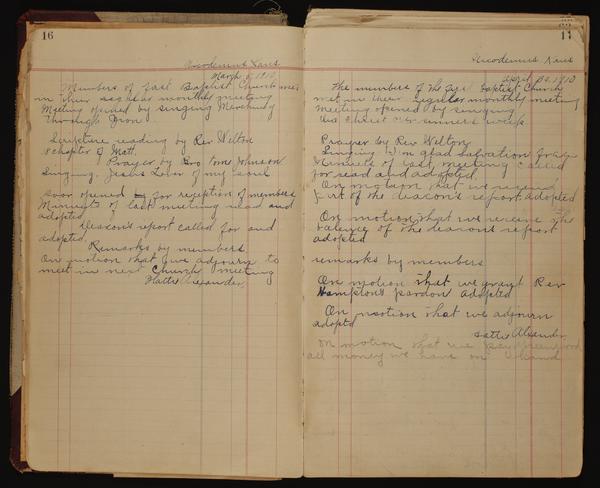 16
Nicodemus Kans
March 5, 1910
Members of fast Baptist Church met
in their regular monthly meeting
Meeting opened by singing Marching
Through
Scripture reading by Rev Welton
8 chapter of Matt.
Prayer by Bro Tome Johnson
Singing. Jesus Lover of my Soul
Door opened for reception of members
Minuets of last meeting read and
adopted
Deacon's report called for and
adopted
Remarks by members
On motion that we adjourn to
meet in next Church meeting
Hattie Alexander
17
Nicodemus Kans
April 1910
The members of the First Baptist Church
met in their regular monthly meeting
meeting opened by singing
Did Christ O'er sinners weep
Prayer by Rev Welton
Singing glad salvation
Minuets of last meeting called
for read and adopted
On motion that we receive
part of the deacon's report adopted
On motion that we receive the
balence of the deacons report
adopted
remarks by members
On motion that we grant Rev
Hampton's pardon adopted
On motion that we adjourn
adopted
Hattie Alexander
On motion that we pay
all money we have on hand